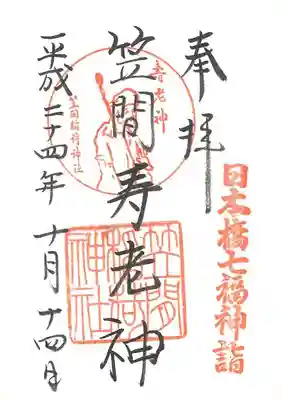 奉拝
日本橋七福神詣
壽老神
笠間寿老神
笠間稲荷神社
笠間神社
平成二十四年 十月 十四日